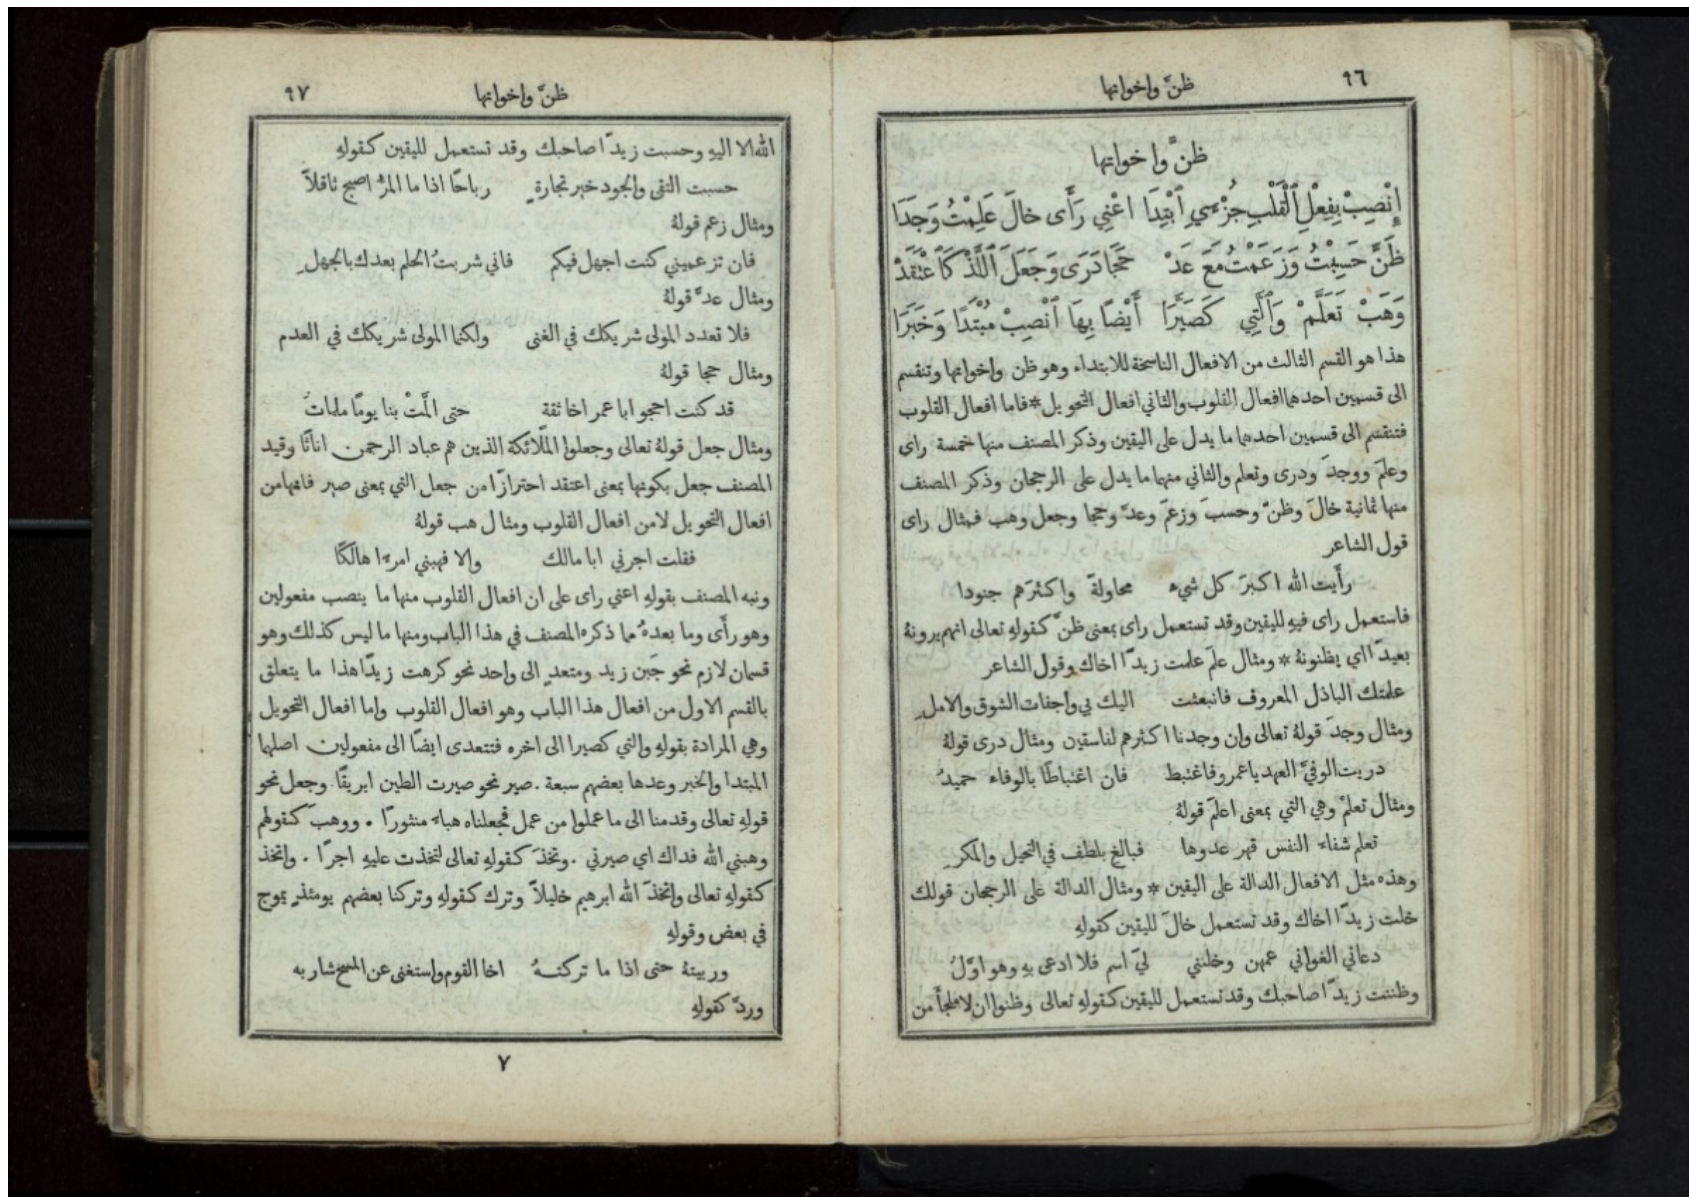 ٩٦
ظنَّ واخواتها
ظنَّ واخواتها
إِنْصِبْ بِفِعْلِ ٱلْقَلْبِ جُزْءَيِ ٱبْتِدَا اعْنِي رَأَى خالَ عَلِمْتُ وَجَدَا
ظَنَّ حَسِبْتُ وَزَعَمْتُ مَعَ عَدّْ حَجَا دَرَى وَجَعَلَ ٱللَّذْ كَٱعْتَقَدْ
وَهَبْ تَعَلَّمْ وَٱلَّتِي كَصَيَّرَا أَيْضًا بِهَا ٱنْصِبْ مُبْتَدًا وَخَبَرَا
هذا هو القسم الثالث من الافعال الناسخة للابتداء وهو ظن واخواتها وتنقسم
الى قسمين احدهما افعال القلوب والثاني افعال التحويل * فاما افعال القلوب
فتنقسم الى قسمين احدهما ما يدل على اليقين وذكر المصنف منها خمسة راى
وعلمَ ووجدَ ودرى وتعلم والثاني منهما ما يدل على الرجحان وذكر المصنف
منها ثمانية خالَ وظنَّ وحسبَ وزعمَ وعدَّ وحجا وجعل وهب فمثال راى
قول الشاعر
رأَيت الله اكبرَ كل شيء محاولةً واكثرَهم جنودا
فاستعمل راى فيهِ لليقين وقد تستعمل راى بمعنى ظنَّ كقولهِ تعالى انهم يرونهُ
بعيدًا اي يظنونهُ * ومثال علمَ علمت زيدًا اخاك وقول الشاعر
علمتك الباذل المعروف فانبعثت اليك بي واجفات الشوق والاملِ
ومثال وجدَ قولهُ تعالى وان وجدنا اكثرهم لفاسقين ومثال درى قولهُ
دريت الوفيَّ العهد ياعمرو فاغتبط فان اغتباطًا بالوفاء حميدُ
ومثال تعلمْ وهي التي بمعنى اعلمَ قولهُ
تعلم شفاء النفس قهر عدوها فبالغ بلطف في التحيل والمكرِ
وهذه مثل الافعال الدالة على اليقين * ومثال الدالة على الرجحان قولك
خلت زيدًا اخاك وقد تستعمل خالَ لليقين كقولهِ
دعاني الغواني عمهن وخلتني ليَ اسم فلا ادعى بهِ وهو اوَّلُ
وظننت زيدًا صاحبك وقد تستعمل لليقين كقولهِ تعالى وظنوا ان لا ملجأَ من
٩٧
ظنَّ واخواتها
الله الا اليهِ وحسبت زيدًا صاحبك وقد تستعمل لليقين كقولهِ
حسبت التقى والجود خير تجارةٍ رباحًا اذا ما المرءُ اصبح ثاقلاً
ومثال زعم قولهُ
فان تزعميني كنت اجهل فيكم فاني شربتُ الحلم بعدك بالجهلِ
ومثال عدَّ قولهُ
فلا تعدد المولى شريكك في الغنى ولكنما المولى شريكك في العدم
ومثال حجا قولهُ
قد كنت احجو ابا عمر اخا ثقة حتى المَّتْ بنا يومًا ملماتُ
ومثال جعل قولهُ تعالى وجعلوا الملائكة الذين هم عباد الرحمن اناثًا وقيد
المصنف جعل بكونها بمعنى اعتقد احترازًا من جعل التي بمعنى صير فانها من
افعال التحويل لا من افعال القلوب ومثال هب قولهُ
فقلت اجرني ابا مالك والا فهبني امرءًا هالكًا
ونبه المصنف بقولهِ اعني راى على ان افعال القلوب منها ما ينصب مفعولين
وهو رأَى وما بعدهُ مما ذكره المصنف في هذا الباب ومنها ما ليس كذلك وهو
قسمان لازم نحو جَبن زيد ومتعدٍ الى واحد نحو كرهت زيدًا هذا ما يتعلق
بالقسم الاول من افعال هذا الباب وهو افعال القلوب واما افعال التحويل
وهي المرادة بقولهِ والتي كصيرا الى اخره فتتعدى ايضًا الى مفعولين اصلهما
المبتدا والخبر وعدها بعضهم سبعة . صير نحو صيرت الطين ابريقًا وجعل نحو
قولهِ تعالى وقدمنا الى ما عملوا من عمل فجعلناه هباءً منثورًا . ووهبَ كقولهم
وهبني الله فداك اي صيرني . وتخذَ كقولهِ تعالى لتخذت عليهِ اجرًا . واتخذ
كقولهِ تعالى واتخذَ الله ابرهيم خليلاً وترك كقولهِ وتركنا بعضهم يومئذٍ يموج
في بعض وقولهِ
وربيتهُ حتى اذا ما تركتهُ اخا القوم واستغنى عن المسح شاربه
وردَّ كقولهِ
٧